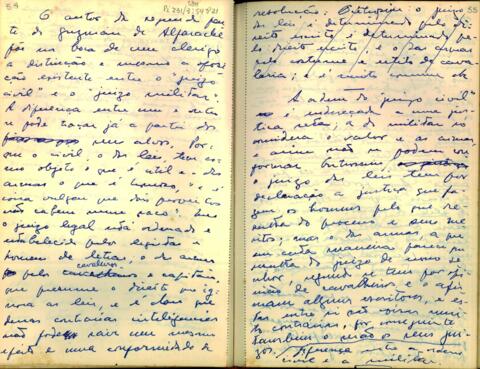 54
Pi 231/8:545321
O autor da segunda par
te de Guzman de Alfarache
põe na boca de um clerigo
a distinção e mesmo a oposi
ção existente entre o "juizo
civil" e o "juizo militar".
A diferença entre um e outro
se pode traçar já a partir dos
seus alvos. Por
que o civil, o das leis, tem co
mo objeto o que é util e o das
armas o que é honroso, "e é
coisa vulgar que dois proveitos
não cabem num saco". Mas
o juizo legal está ordenado e
estabelecido pelos legistas
homens de letras, o das armas
pelos cavaleiros e capitães
que presume o direito que ig
nora as leis, e é claro que
duas contrarias inteligencias
não podem sair um mesmo
efeito e uma conformidade de
55
resolução. Outrossim o juizo
das leis é determinado pelo di
reito escrito e determinado pe
lo direito escrito, e o das armas
pelo costume e estilo de cava
laria; e é muito comum
A ordem do "juizo civil"
é endereçada a uma jus
tiça reta; a do militar só
considera o valor e as armas
e assim não se podem con
formar. Outrossim
o juizo das leis tem por
declaração a justiça que fa
zem os homens pelo que re
sulta do processo e seus me
ritos; mas o das armas, a que
em certa maneira parece que
resulta do juizo de uns se
nhores, segundo se tem por opi
nião de cavaleiros e o afir
mam alguns escritores, e es
tas entre si são coisas muito
contrarias, por conseguinte
tambem o serão os seus jui
zos. Diferença entre a ordem
civil e a militar.